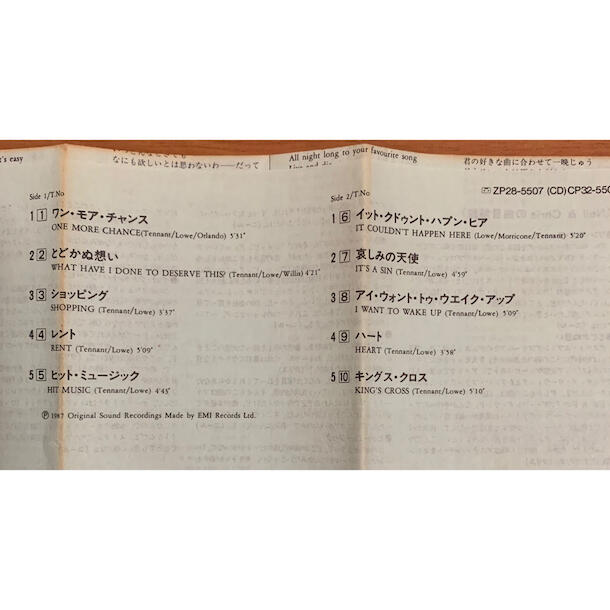 t's easy
なにも欲しいとは思わないわ——だって
All night long to your favourite song
君の好きな曲に合わせて一晩じゅう
Side 1/T.No
1 1 ワン・モア・チャンス
ONE MORE CHANCE(Tennant/Lowe/Orlando) 5'31"
2 2 とどかぬ想い
WHAT HAVE I DONE TO DESERVE THIS? (Tennant/Lowe/Willis) 4'21"
3 3 ショッピング
SHOPPING (Tennant/Lowe) 3'37"
4 4 レント
RENT (Tennant/Lowe) 5'09"
5 5 ヒット・ミュージック
HIT MUSIC (Tennant/Lowe) 4'45"
Ⓟ 1987 Original Sound Recordings Made by EMI Records Ltd.
Side 2/T.No
ZP28-5507 (CD)CP32-550
1 6 イット・クドゥント・ハプン・ヒア
IT COULDN'T HAPPEN HERE (Lowe/Morricone/Tennant) 5'20"
2 7 哀しみの天使
IT'S A SIN (Tennant/Lowe) 4'59"
3 8 アイ・ウォント・トゥ・ウエイク・アップ
I WANT TO WAKE UP (Tennant/Lowe) 5'09"
4 9 ハート
HEART (Tennant/Lowe) 3'58"
5 10 キングス・クロス
KING'S CROSS (Tennant/Lowe) 5'10"